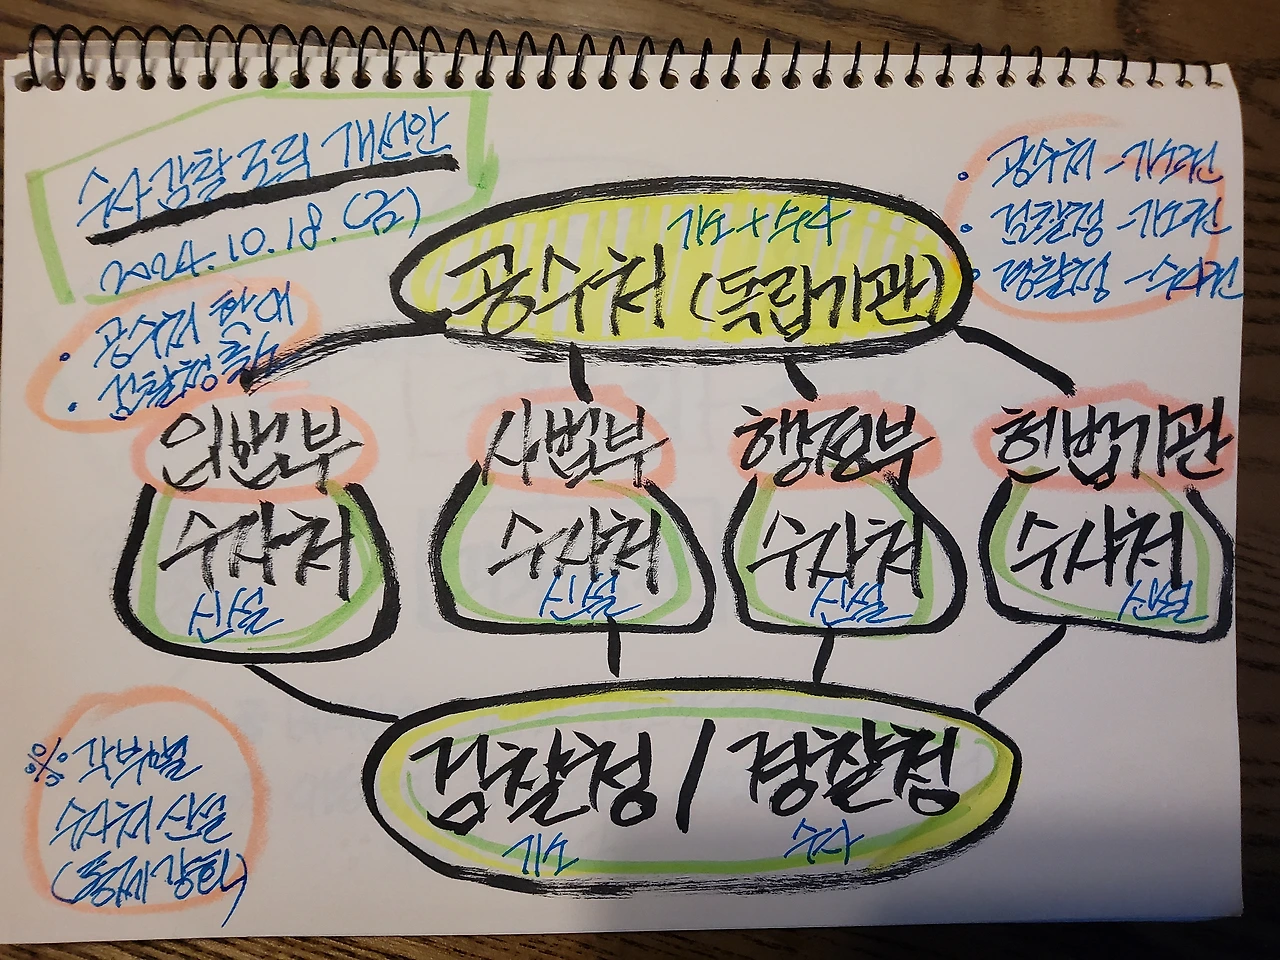 수사감찰조직 개선안
2024.10.18.(금)
• 공수처 확대
• 검찰청 축소
• 공수처 -기소권
• 검찰청 -기소권
• 경찰청 -수사권
기소+수사
공수처 (독립기관)
입법부
수사처
신설
사법부
수사처
신설
행정부
수사처
신설
헌법기관
수사처
신설
검찰청 / 경찰청
기소
수사
※ 각부별
수사처 신설
(통제강화)